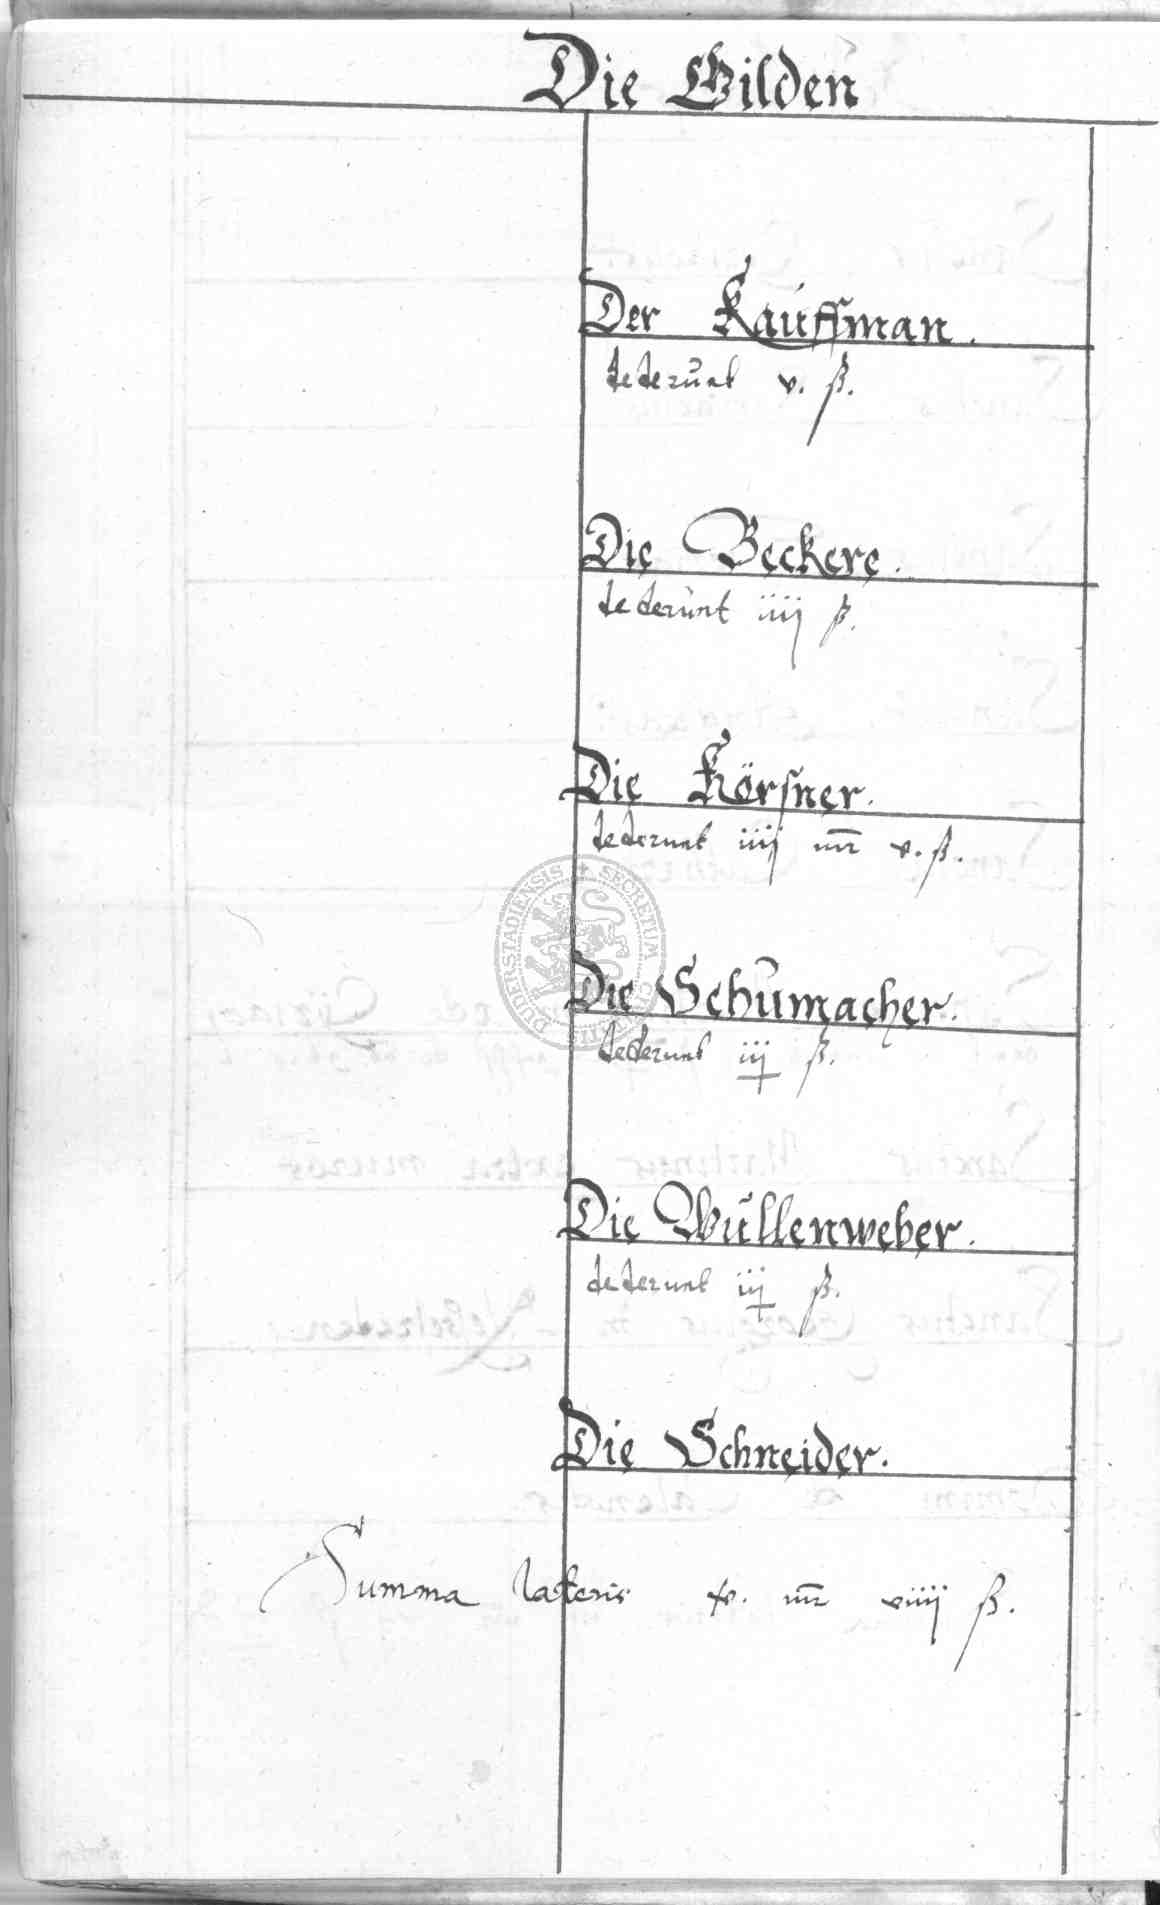 Die Gilden
Der Kauffman.
dederunt v. ß.
Die Beckere.
dederunt iiij ß.
Die Körsner.
dederunt iiij mr v. ß.
Die Schumacher.
dederunt iij ß.
Die Wullenweber.
dederunt iij ß.
Die Schneider.
Summa lateris mr viiij ß.
SECRETUM CIVITATIS DUDERSTADIENSIS